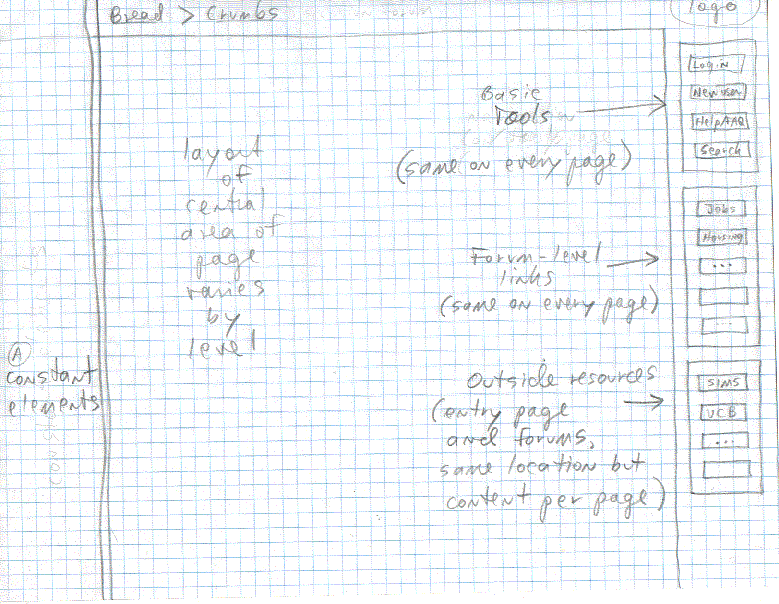 Bread > Crumbs
logo
Login
New user
Help/FAQ
Search
Basic
Tools
(same on every page)
layout
of
central
area of
page
varies
by
level
Jobs
Housing
...
...
Forum-level
links
(same on every page)
A
constant
elements
Outside resources
(entry page
and forums,
same location but
content per page)
SIMS
UCB
...